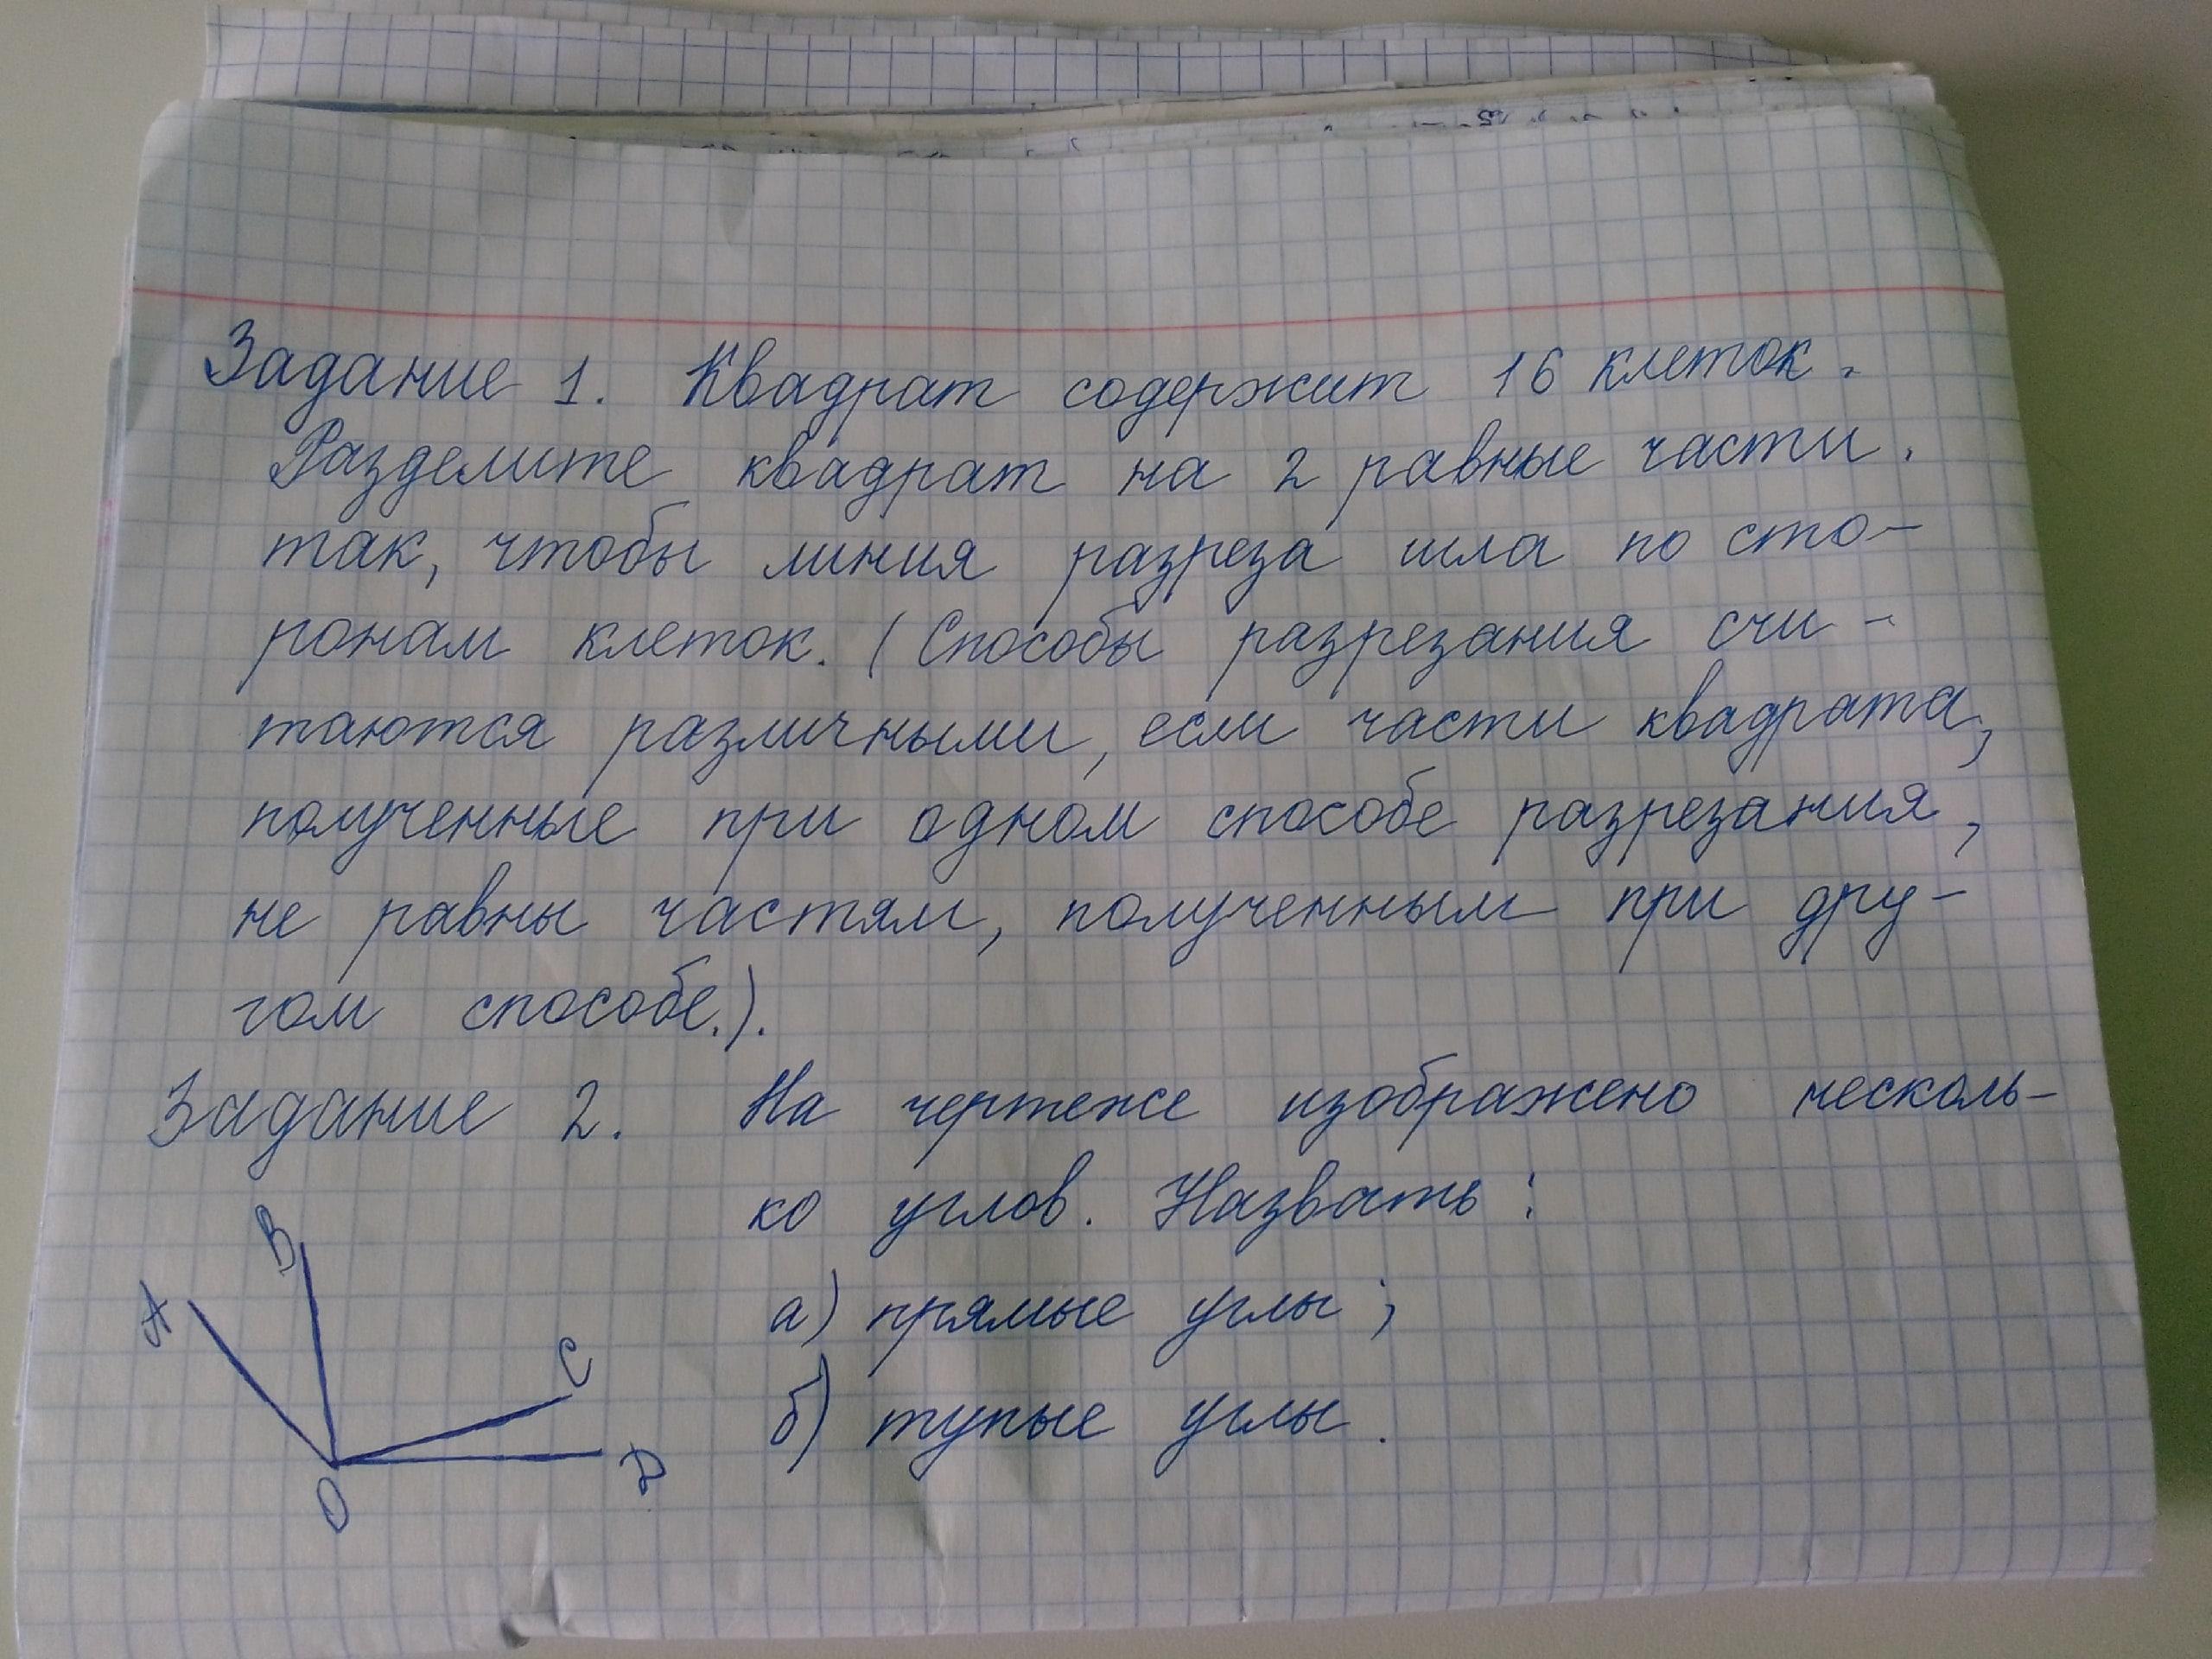 Задание 1. Квадрат содержит 16 клеток.
Разделите квадрат на 2 равные части.
так, чтобы линия разреза шла по сто-
ронам клеток. (Способы разрезания счи-
таются различными, если части квадрата,
полученные при одном способе разрезания,
не равны частям, полученным при дру-
гом способе.).
Задание 2. На чертеже изображено несколь-
ко углов. Назвать:
а) прямые углы;
б) тупые углы.
A
B
C
D
O